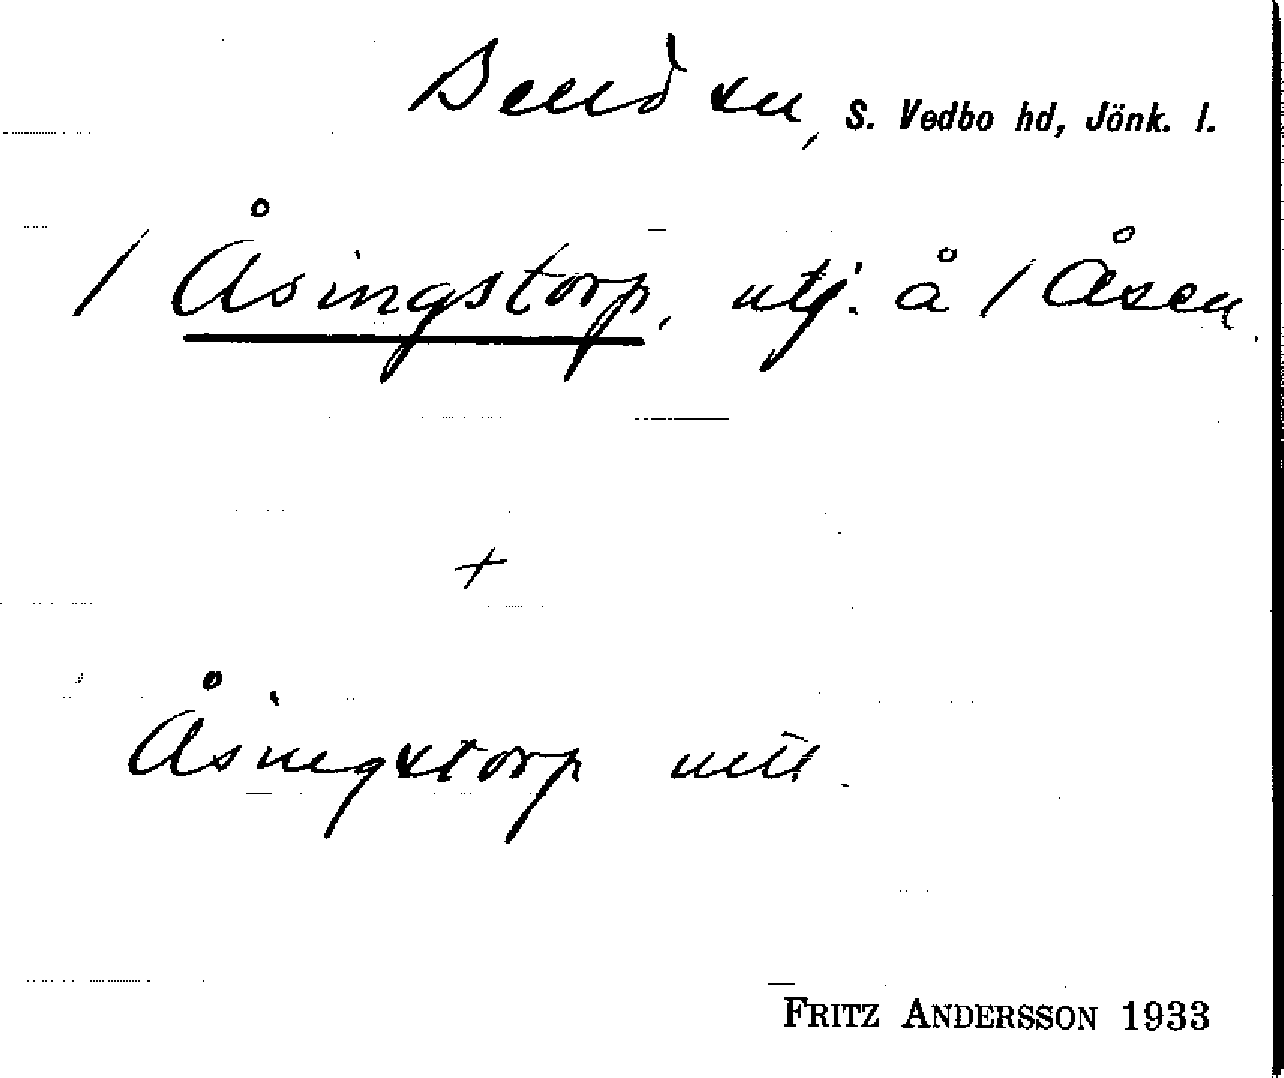 Bendsen, S. Vedbo hd, Jönk. l.
/ Åsingstorp, utj. å / Åsen.
+
Åsingstorp
FRITZ ANDERSSON 1933